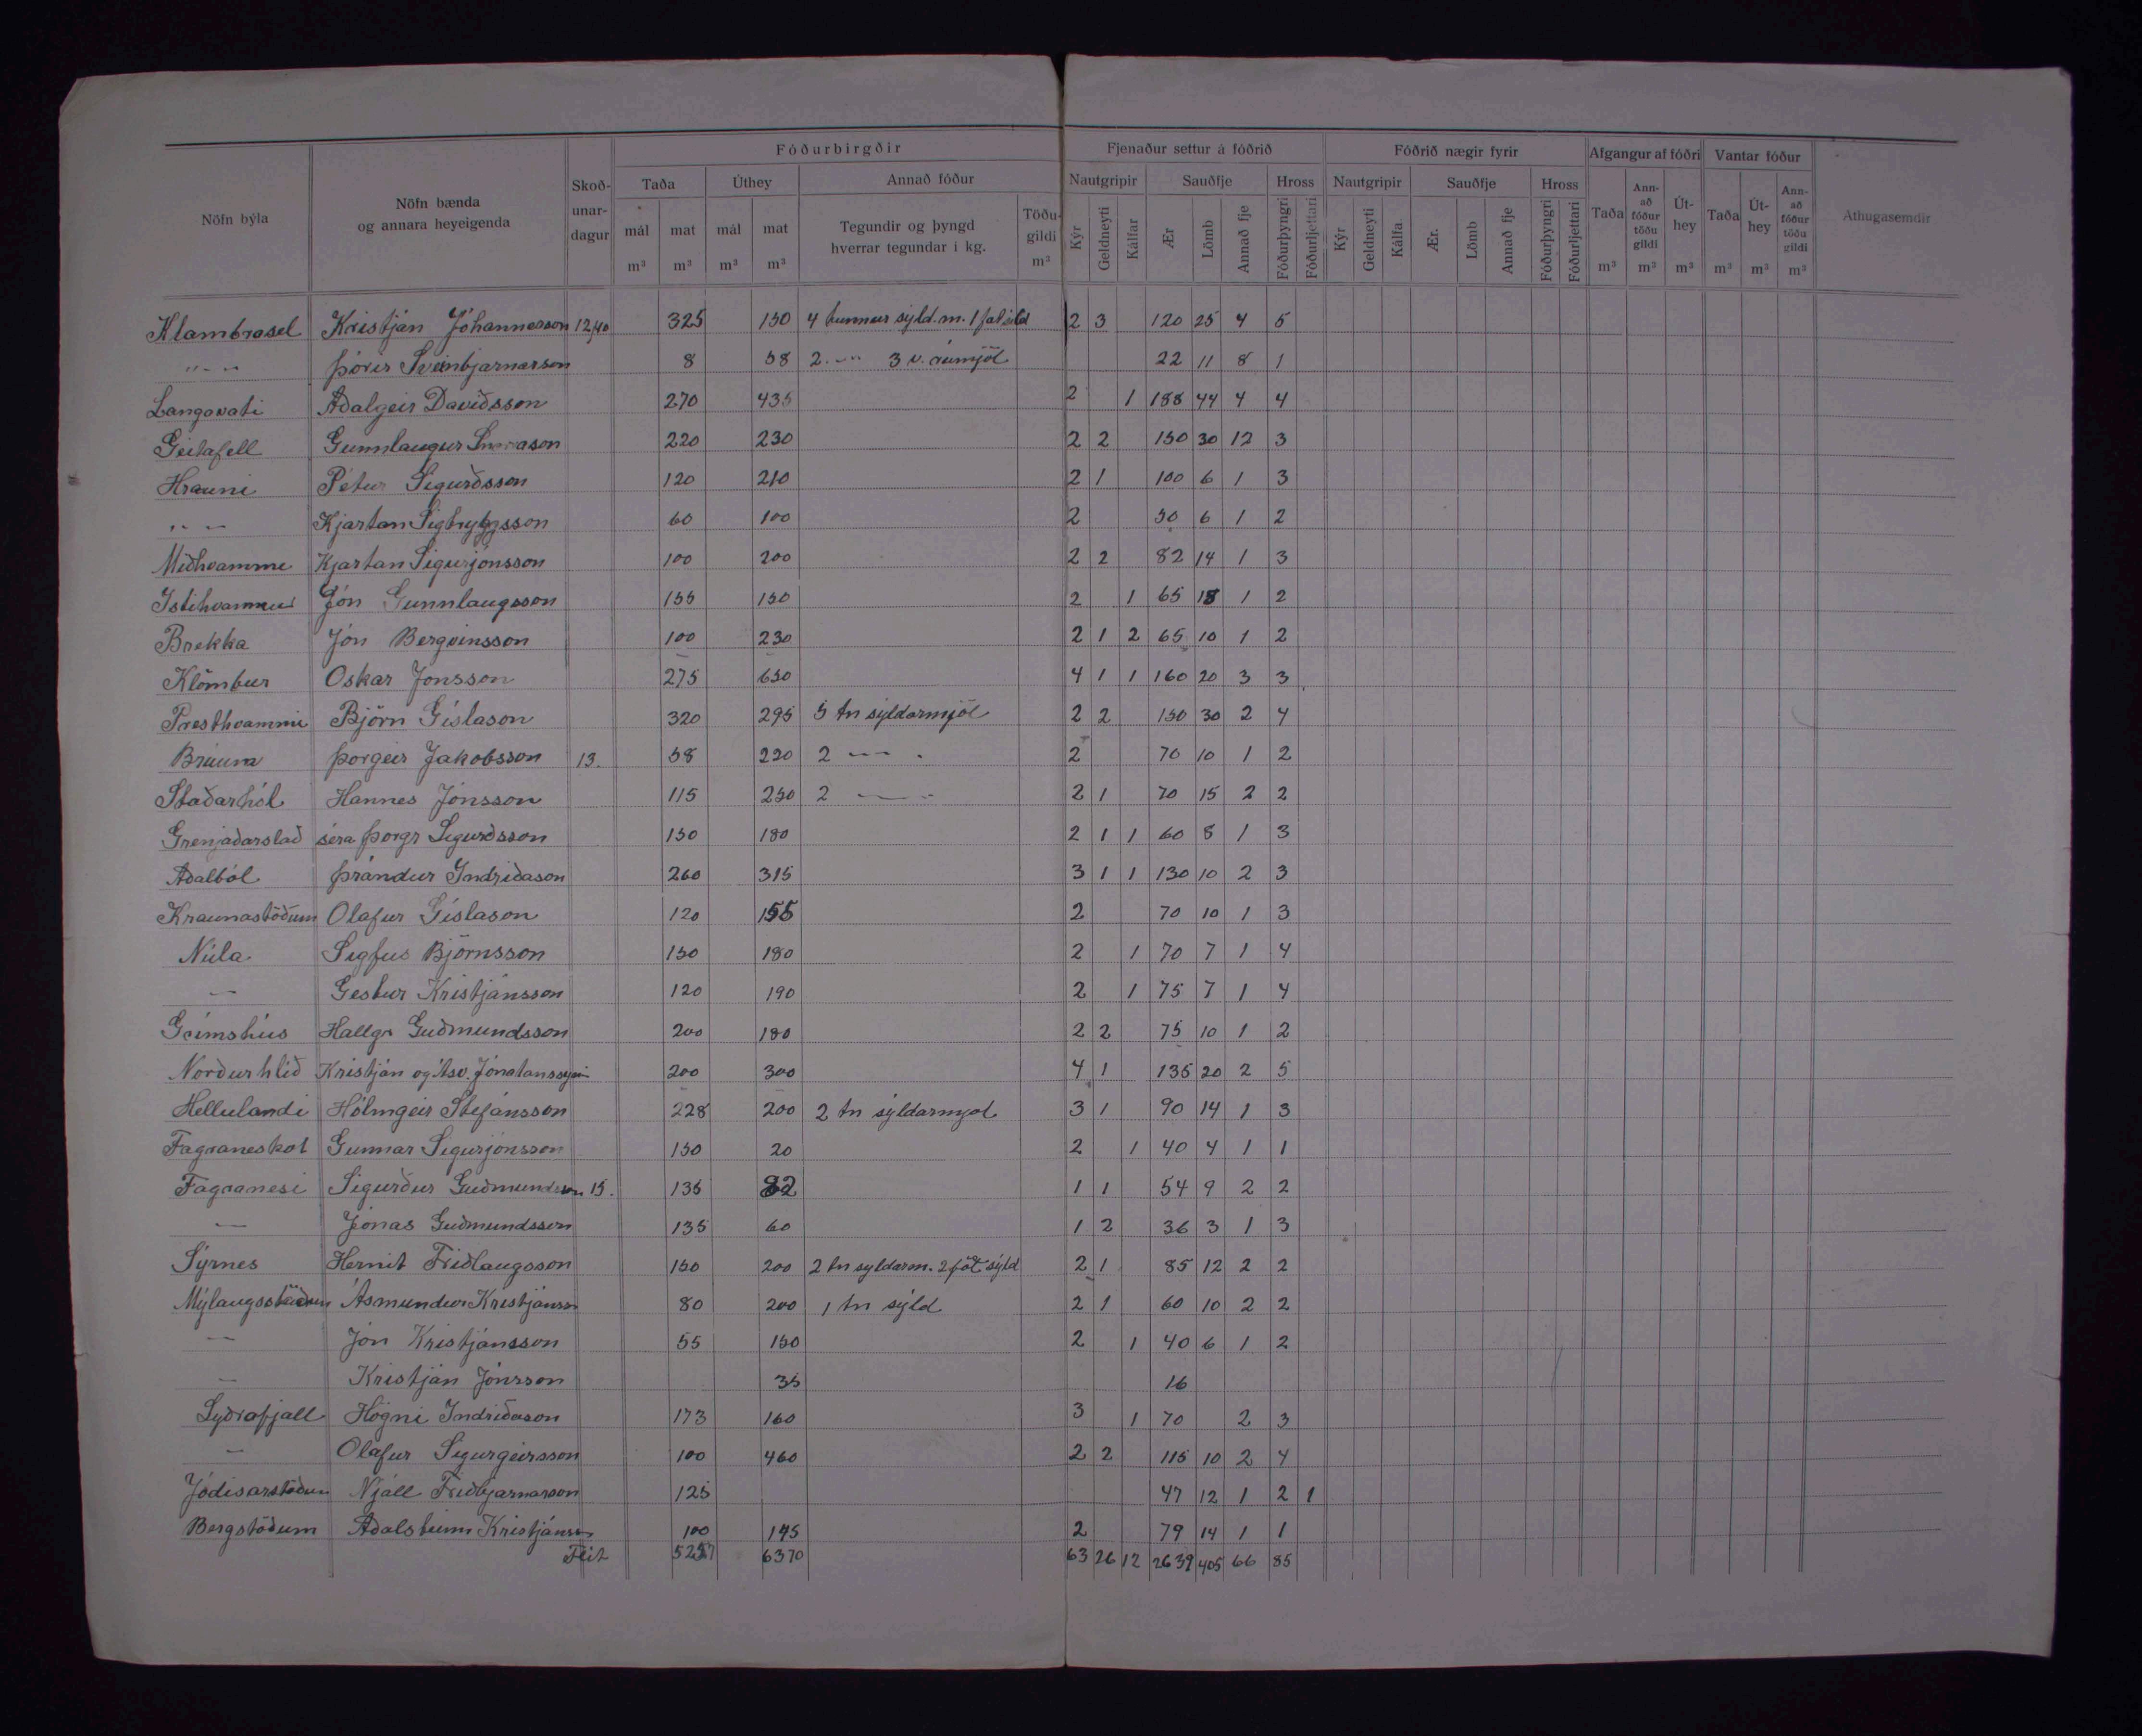 Fóðurbirgðir Fjenaður settur á fóðrið Fóðrið nægir fyrir Afgangur af fóðri Vantar fóður
Nöfn býla Nöfn bænda og annara heyeigenda Skoð-unar-dagur Taða Úthey Annað fóður Nautgripir Sauðfje Hross Nautgripir Sauðfje Hross Taða Ann-að fóður töðu gildi Út-hey Taða Út-hey Ann-að fóður töðu gildi Athugasemdir
mál mat mál mat Tegundir og þyngd hverrar tegundar í kg. Töðu-gildi Kýr Geldneyti Kálfar Ær Lömb Annað fje Fóðurþyngri Fóðurljettari Kýr Geldneyti Kálfa Ær. Lömb Annað fje Fóðurþyngri Fóðurljettari
m³ m³ m³ m³ m³ m³ m³ m³ m³ m³ m³
Klambrasel Kristján Jóhannesson 12/40 325 150 4 tunnur syld.m. 1 fat síld 2 3 120 25 4 5
" - " Þórir Sveinbjarnarson 8 58 2 -"- 3 v. 22 11 8 1
Langavati Aðalgeir Davíðsson 270 435 2 1 188 44 4 4
Geitafell Gunnlaugur 220 230 2 2 150 30 12 3
Hrauni Pétur Sigurðsson 120 210 2 1 100 6 1 3
" - Kjartan Sigtryggsson 60 100 2 50 6 1 2
Miðhvammi Kjartan Sigurjónsson 100 200 2 2 82 14 1 3
Jón Gunnlaugsson 155 150 2 1 65 18 1 2
Brekka Jón Bergvinsson 100 230 2 1 2 65 10 1 2
Klömbur Oskar Jónsson 275 650 4 1 1 160 20 3 3
Presthvammi Björn Gíslason 320 295 5 tn syldarmjöl 2 2 150 30 2 4
Brúum Þorgeir Jakobsson 13. 58 220 2 — " — 2 70 10 1 2
Staðarhól Hannes Jónsson 115 250 2 — " — 2 1 70 15 2 2
Grenjaðarstað séra Þorgr Sigurðsson 150 180 2 1 1 60 8 1 3
Aðalból Þrándur Indriðason 260 315 3 1 1 130 10 2 3
Kraunastöðum Olafur Gíslason 120 155 2 70 10 1 3
Múla Sigfus Björnsson 150 180 2 1 70 7 1 4
— Gestur Kristjánsson 120 190 2 1 75 7 1 4
Grímshús Hallgr Guðmundsson 200 180 2 2 75 10 1 2
Norðurhlíð Kristján og Ásv. Jónatanssynir 200 300 4 1 135 20 2 5
Hellulandi Hólmgeir Stefánsson 228 200 2 tn sýldarmjöl 3 1 90 14 1 3
Fagraneskot Gunnar Sigurjónsson 150 20 2 1 40 4 1 1
Fagranesi Sigurður Guðmundsson 15. 135 82 1 1 54 9 2 2
— Jónas Guðmundsson 135 60 1 2 36 3 1 3
Sýrnes Hernit Friðlaugsson 150 200 2 tn syldarm. 2 föt sýld 2 1 85 12 2 2
Mýlaugsstöðum Ásmundur Kristjánss 80 200 1 tn sýld 2 1 60 10 2 2
— Jón Kristjánsson 55 150 2 1 40 6 1 2
— Kristján Jónsson 35 16
Syðrafjall Högni Indriðason 173 160 3 1 70 2 3
— Olafur Sigurgeirsson 100 460 2 2 115 10 2 4
Jódísarstöðum Njáll Friðbjarnarson 125 47 12 1 2 1
Bergstöðum Aðalsteinn Kristjánss 100 145 2 79 14 1 1
Flit 5257 6370 63 26 12 2639 405 66 85